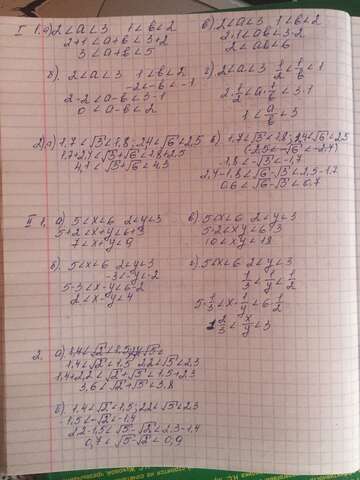 I 1. а) 2<a<3   1<b<2
2+1<a+b<3+2
3<a+b<5
б) 2<a<3   1<b<2
-2<-b<-1
2-2<a-b<3-1
0<a-b<2
в) 2<a<3   1<b<2
2·1<ab<3·2
2<ab<6
г) 2<a<3   1/2<1/b<1
2·1/2<a·1/b<3·1
1<a/b<3
2. а) 1,7<√3<1,8; 2,4<√6<2,5
1,7+2,4<√3+√6<1,8+2,5
4,1<√3+√6<4,3
в) 1,7<√3<1,8; 2,4<√6<2,5
(-2,5<-√6<-2,4)
-1,8<-√3<-1,7
2,4-1,8<√6-√3<2,5-1,7
0,6<√6-√3<0,7
II 1. а) 5<x<6   2<y<3
5+2<x+y<6+3
7<x+y<9
б) 5<x<6   2<y<3
-3<-y<-2
5-3<x-y<6-2
2<x-y<4
в) 5<x<6   2<y<3
5·2<xy<6·3
10<xy<18
г) 5<x<6   2<y<3
1/3<1/y<1/2
5·1/3<x·1/y<6·1/2
1 2/3<x/y<3
2. а) 1,4<√2<1,5;
1,4<√2<1,5   2,2<√5<2,3
1,4+2,2<√2+√5<1,5+2,3
3,6<√2+√5<3,8
б) 1,4<√2<1,5; 2,2<√5<2,3
-1,5<-√2<-1,4
2,2-1,5<√5-√2<2,3-1,4
0,7<√5-√2<0,9